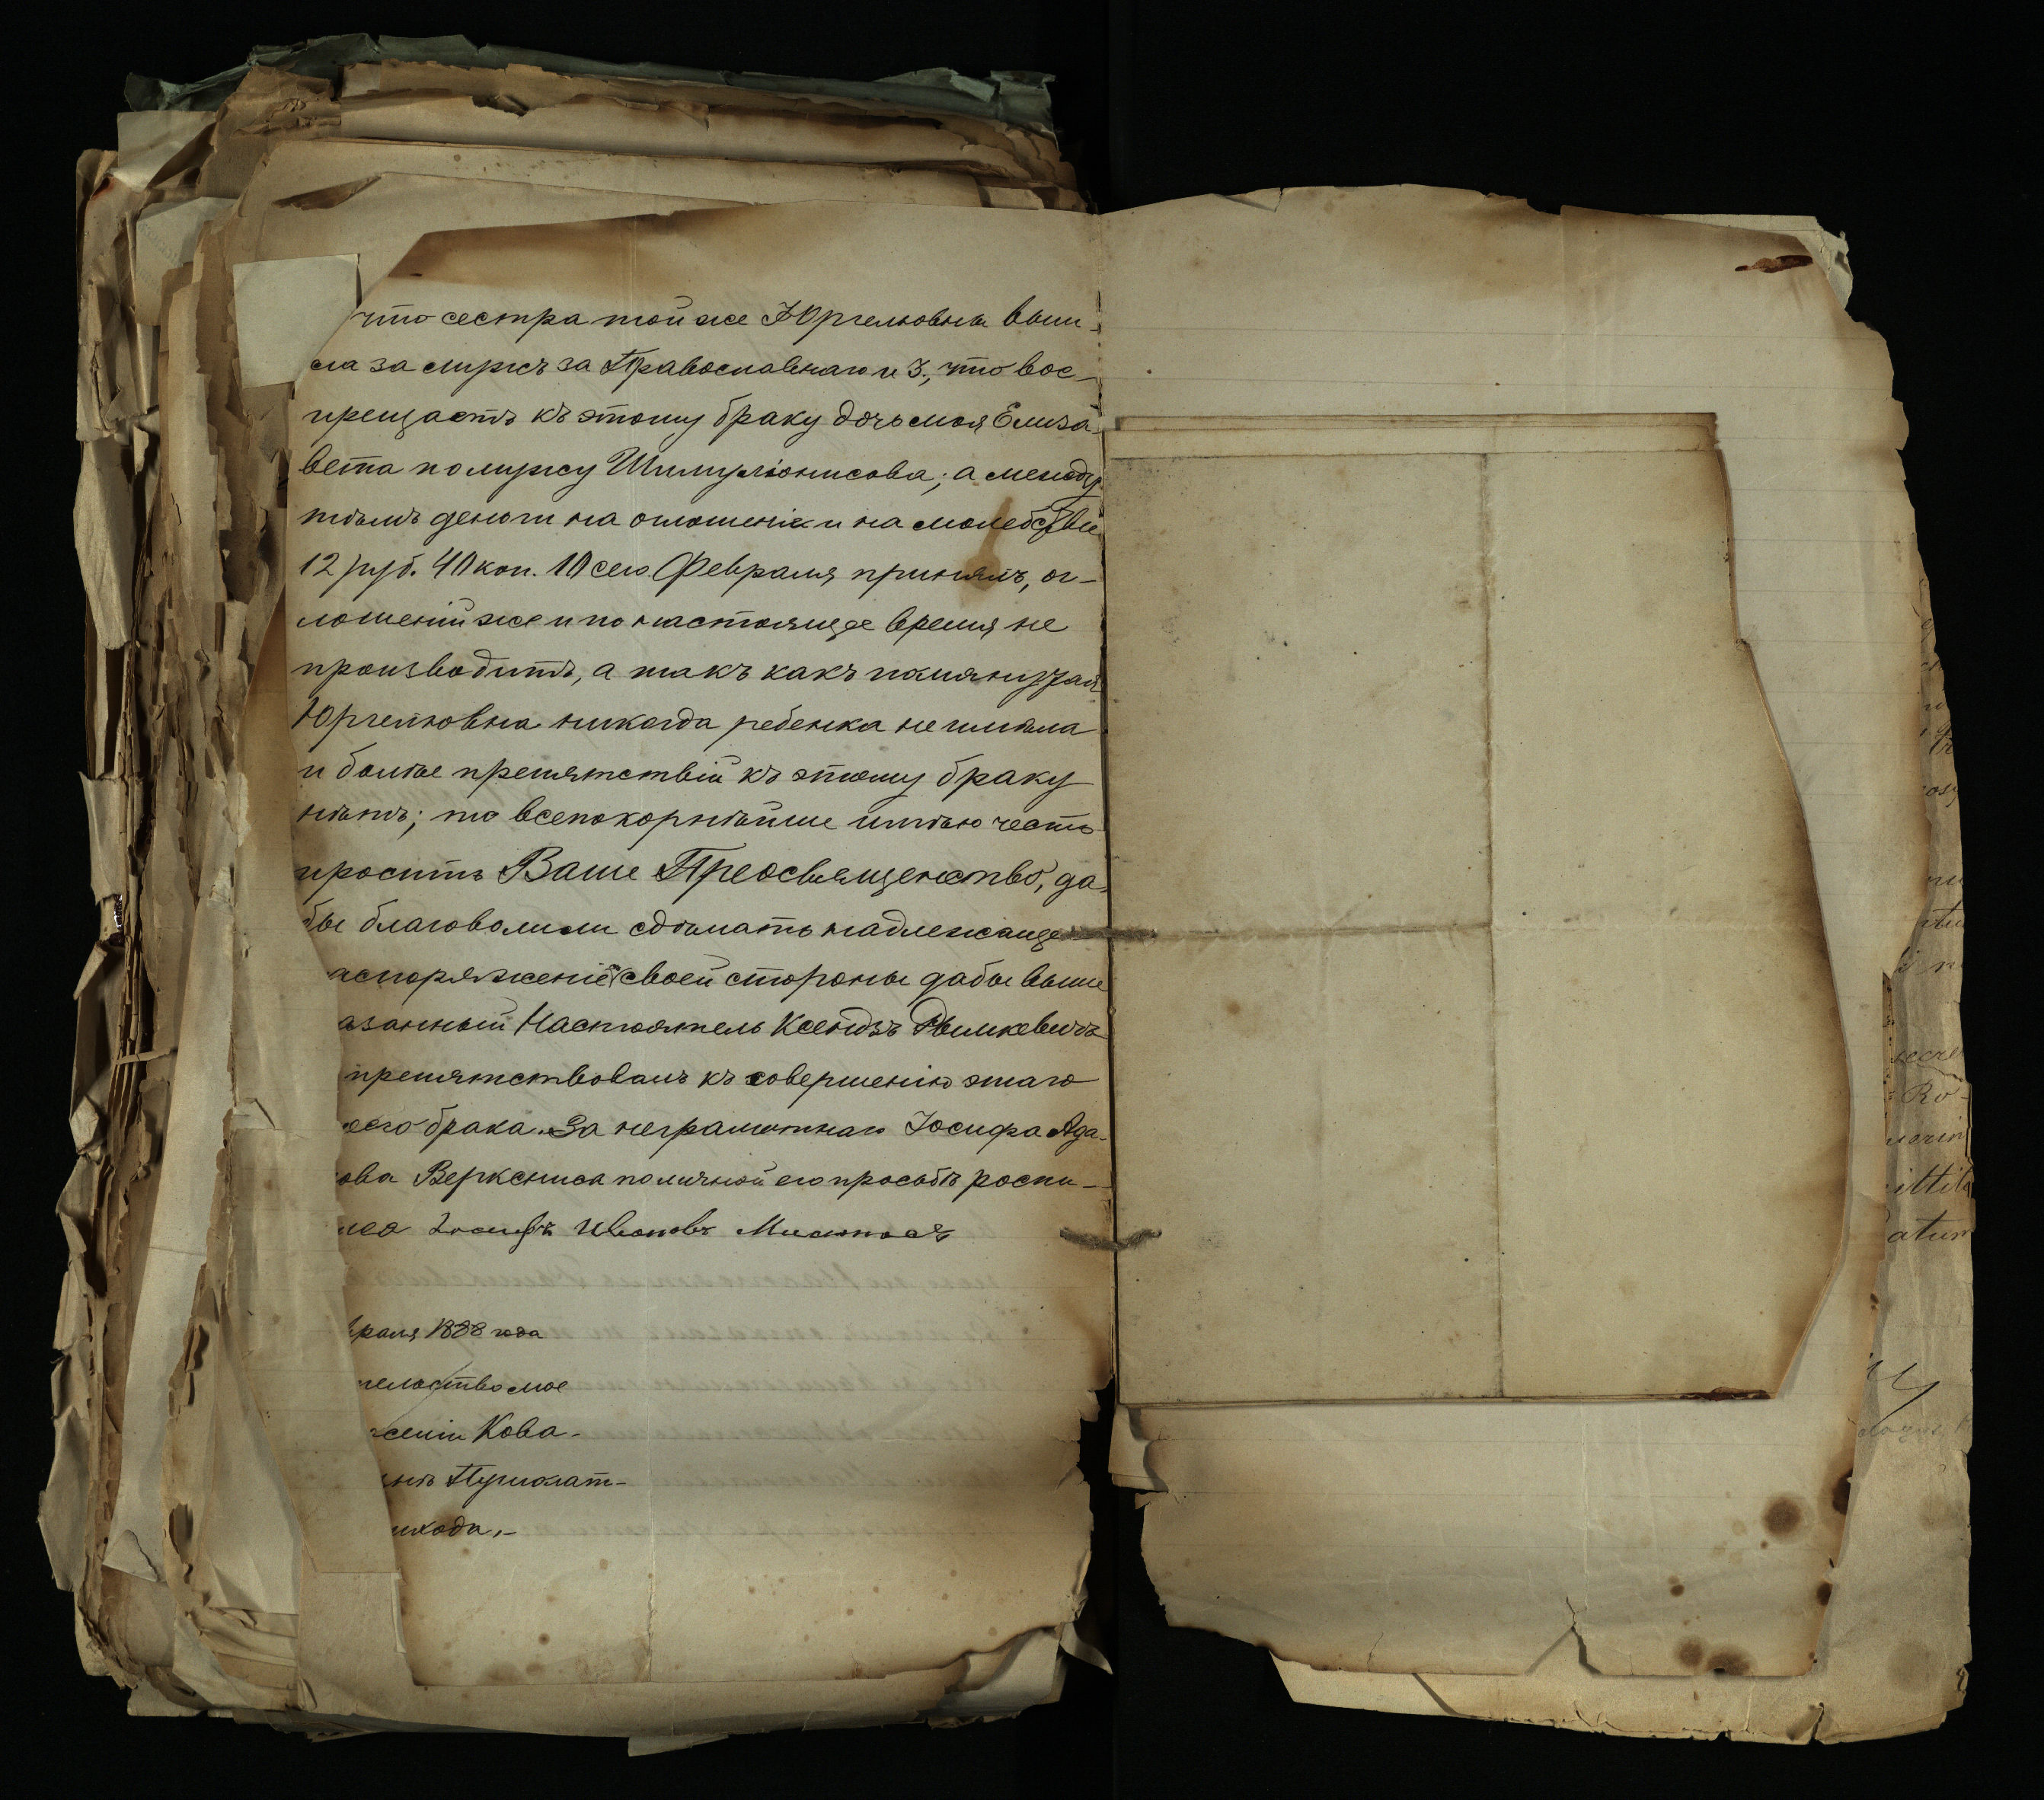 что сестра той же Юргелювны выш-
ла за мужъ за Православнаго и 3., что вос-
прещаетъ къ этому браку дочь моя Елиза-
вета по мужу Шимулюнисова; а между
тѣмъ деньги на оглошенія и на молебствіе
12 руб. 40 коп. 10 сего Февраля принялъ, ог-
лошеній же и по настоящее время не
производитъ, а такъ какъ помянутая
Юргелювна никогда ребенка не имѣла
и болѣе препятствій къ этому браку
нѣтъ; то всепокорнѣйше имѣю честь
просить Ваше Преосвященство, да-
бы благоволили сдѣлать надлежаще
аспоряженіе съ своей стороны дабы выше
азанный Настоятель Ксендзъ
препятствовалъ къ совершенію этаго
оего брака. За неграмотнаго Іосифа Ада-
ова Верксниса по личной его просьбѣ роспи-
лся Іосифъ Ивановъ
враля 1888 года
тельство мое
женіи Кова-
Пушолат-
ихода.-
Ro-
ittit
atur